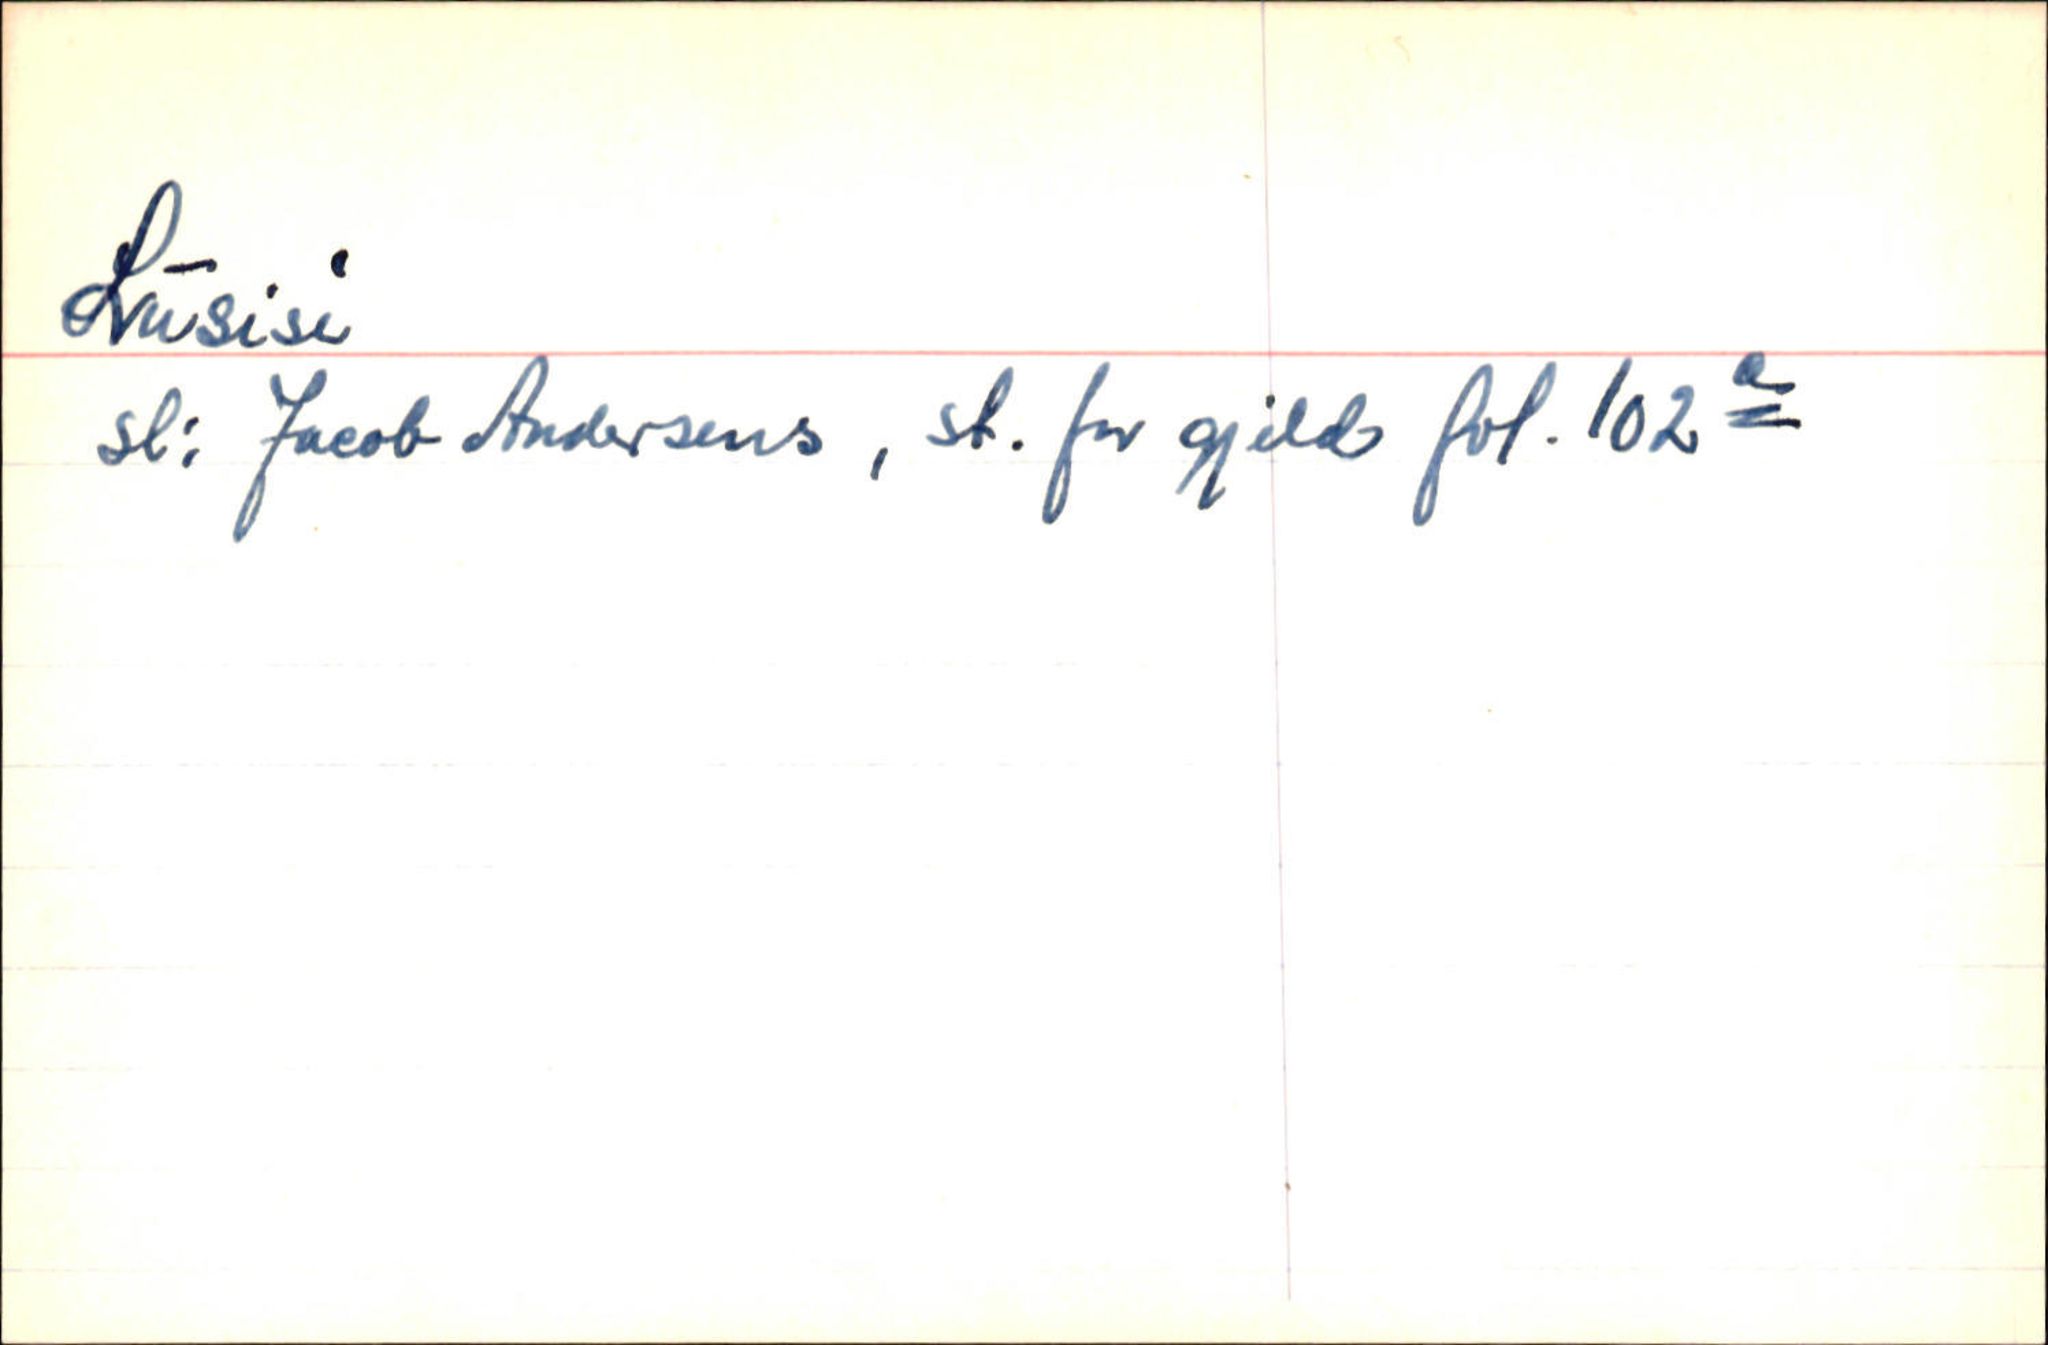 Lūsisi
sl: Jacob Andersens, st. for gjeld fol. 102 a